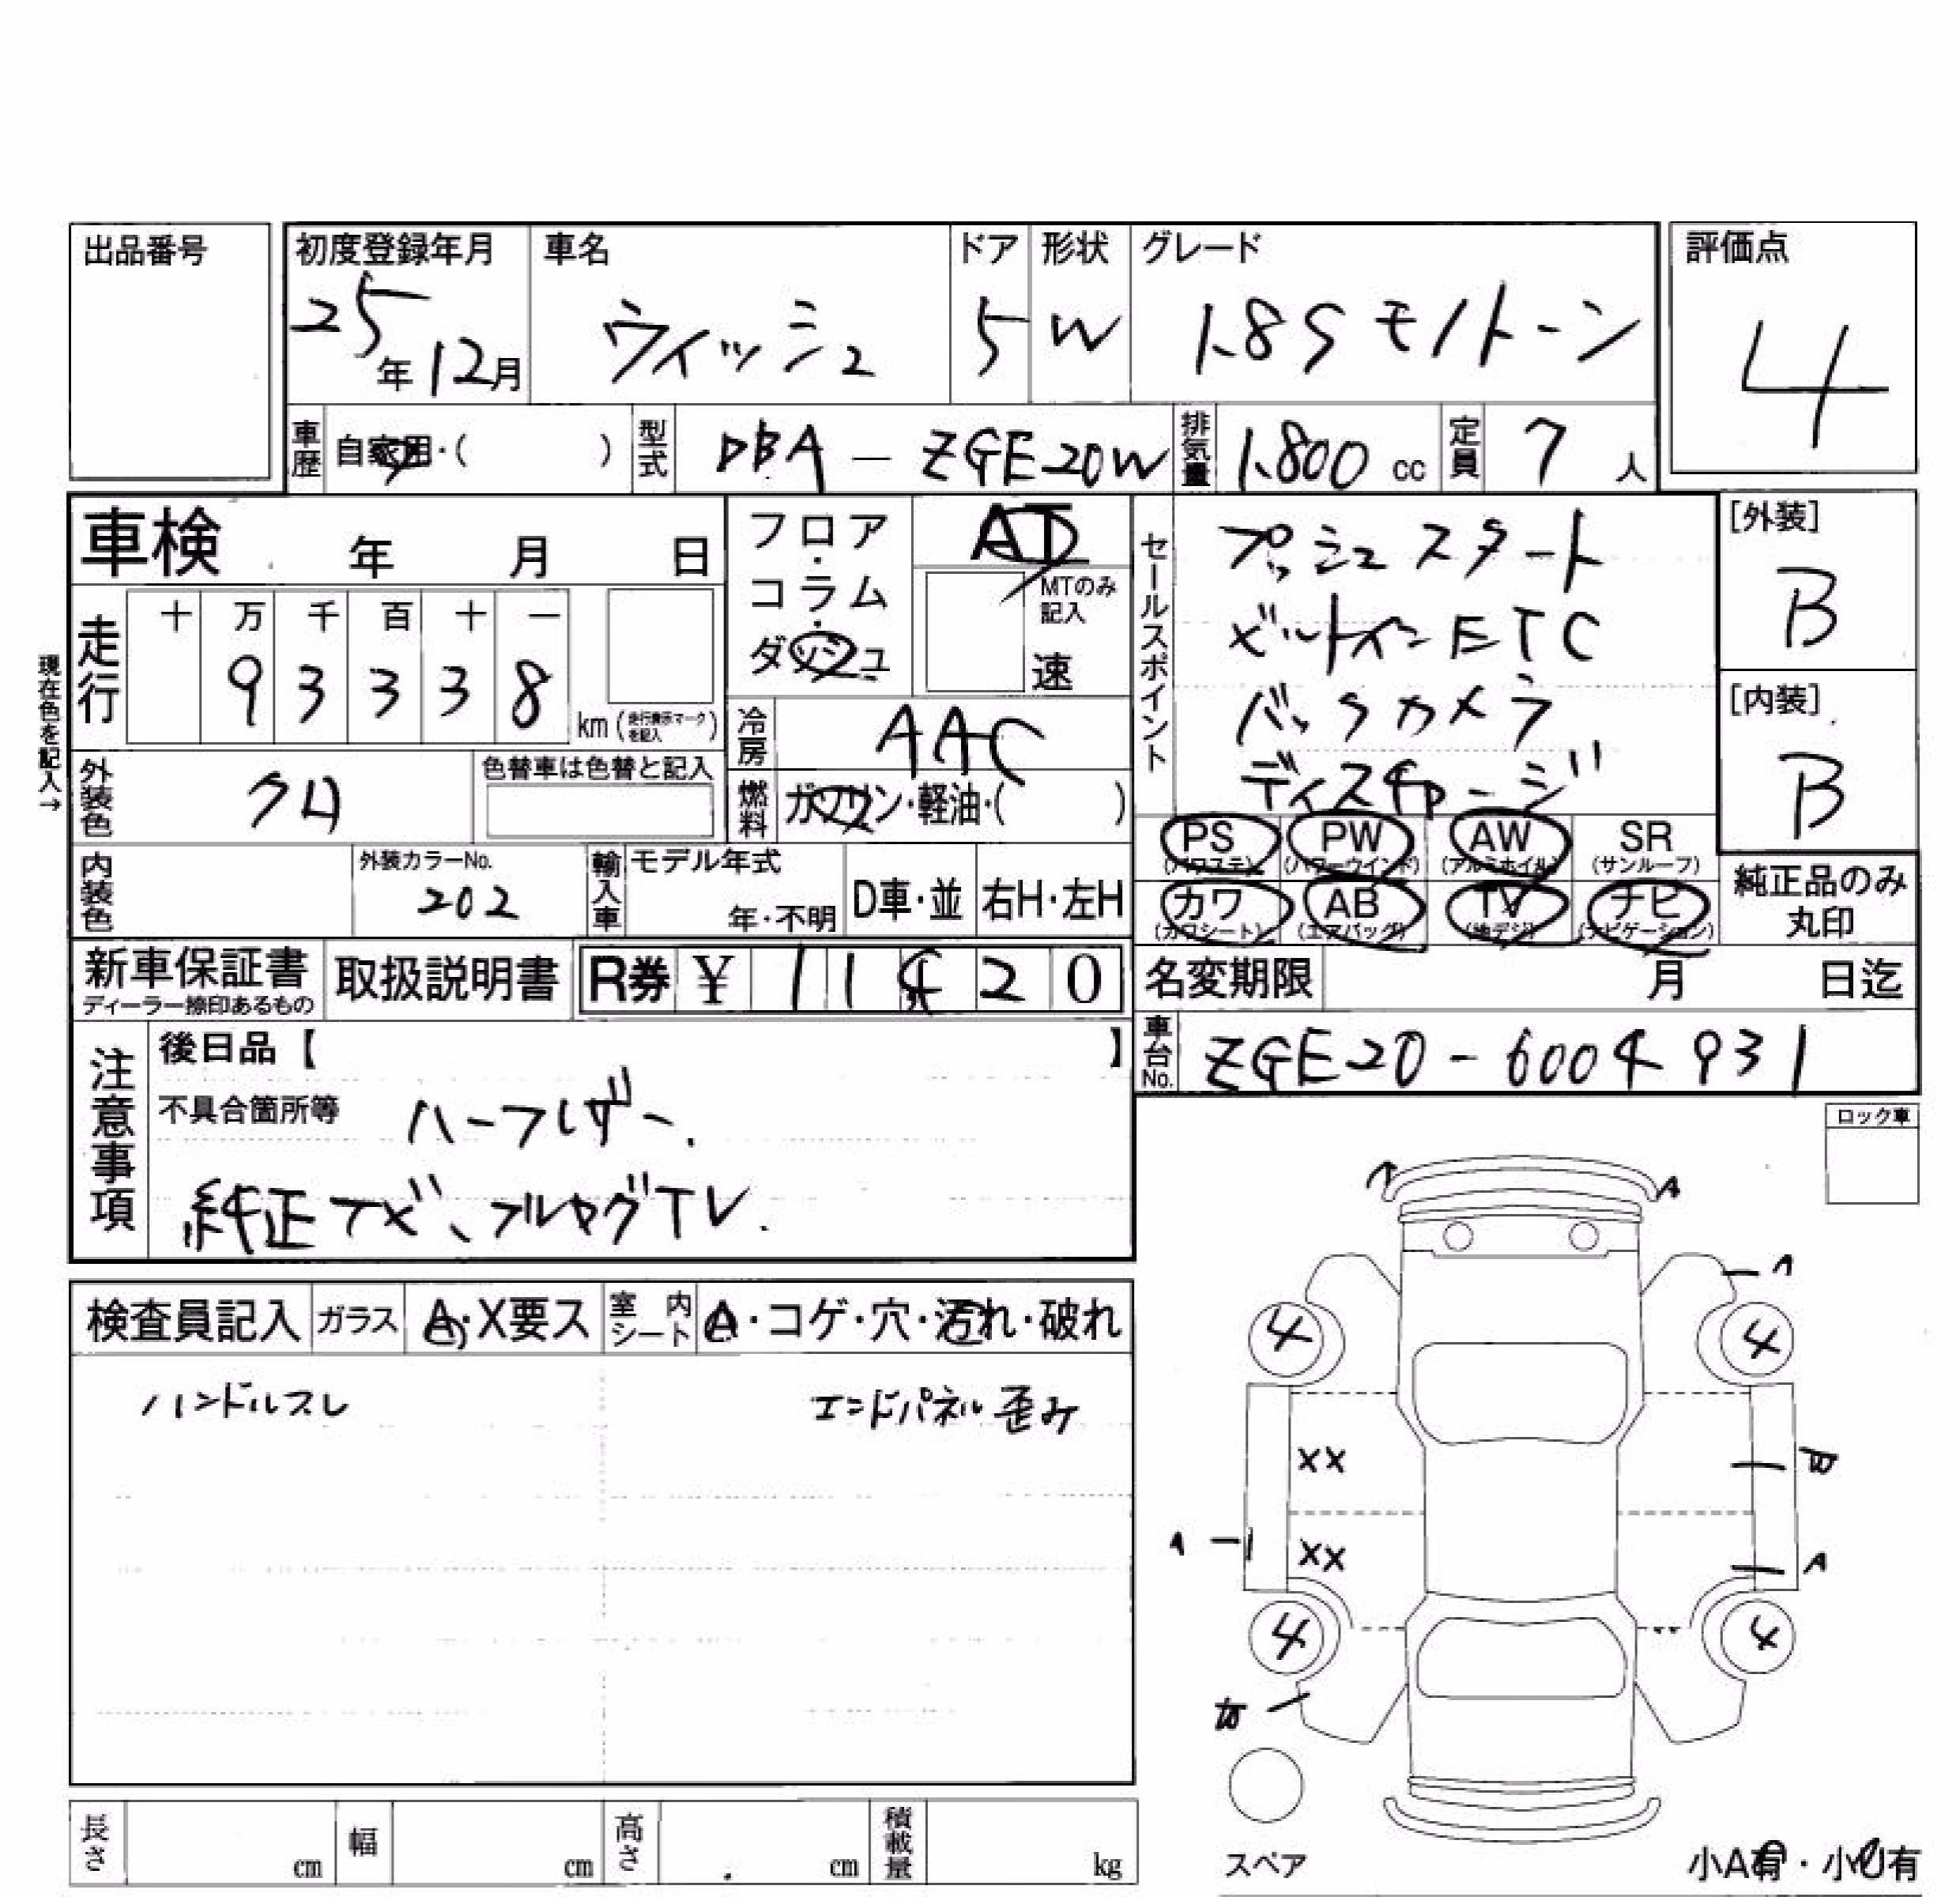 出品番号
初度登録年月 25年12月
車名 ウィッシュ
ドア 5
形状 W
グレード 1.8S モノトーン
評価点 4
車歴 自家用・( )
型式 DBA-ZGE20W
排気量 1.800 cc
定員 7 人
車検 年 月 日
走行 十 万 千 百 十 一
9 3 3 3 8 km (走行表示マークを記入)
現在色を記入→
外装色 クロ
色替車は色替と記入
内装色
外装カラーNo. 202
輸入車 モデル年式 年・不明
D車・並 右H・左H
フロア・コラム・ダッシュ
AT
MTのみ記入
速
冷房 AAC
燃料 ガソリン・軽油・( )
セールスポイント
プッシュスタート
ビルトインETC
バックカメラ
ディスチャージ
PS (パワステ) PW (パワーウインド) AW (アルミホイル) SR (サンルーフ)
カワ (カワシート) AB (エアバッグ) TV (地デジ) ナビ (ナビゲーション)
[外装] B
[内装] B
純正品のみ丸印
新車保証書 ディーラー捺印あるもの
取扱説明書
R券 ¥ 11420
名変期限 月 日迄
車台No. ZGE20-6004931
注意事項
後日品【 】
不具合箇所等 ハーフレザー.
純正ナビ、フルセグTV.
ロック車
検査員記入 ガラス A・X要ス 室内シート A・コゲ・穴・汚れ・破れ
ハンドルスレ
エンドパネル歪み
A
4 4
XX
XX
A
A
4 4
スペア
小A有・小U有
長さ cm 幅 cm 高さ cm 積載量 kg